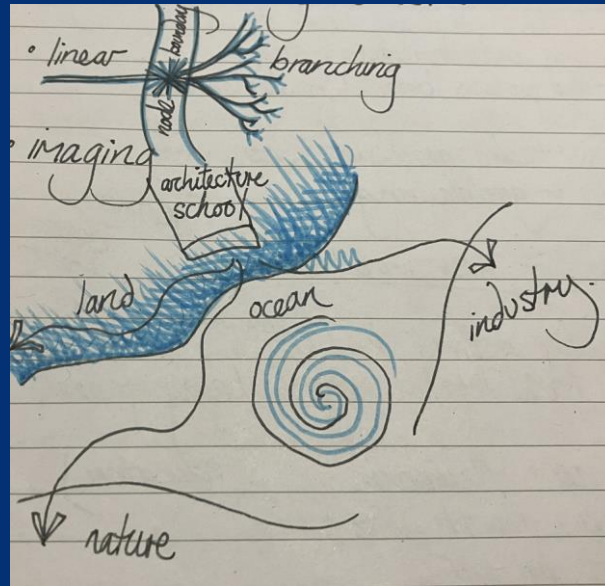 • linear
boundary
node
branching
• imaging
architecture
school
land
ocean
industry.
nature